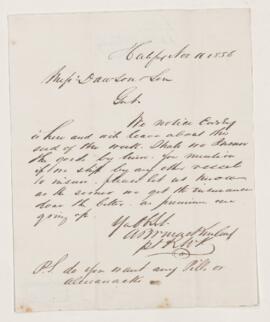 Halifax Nov 10 1856
Messrs Dawson & Son
Gent.
We notice
is here and will leave about the
end of the week. Shall we Insure
the goods by him. You mention
if we ship by any other vessels
to insure. please let us know
as the sooner we get the insurance
done the better. as premiums are
going up.
P.S. do you want any Pills or
Almanacks